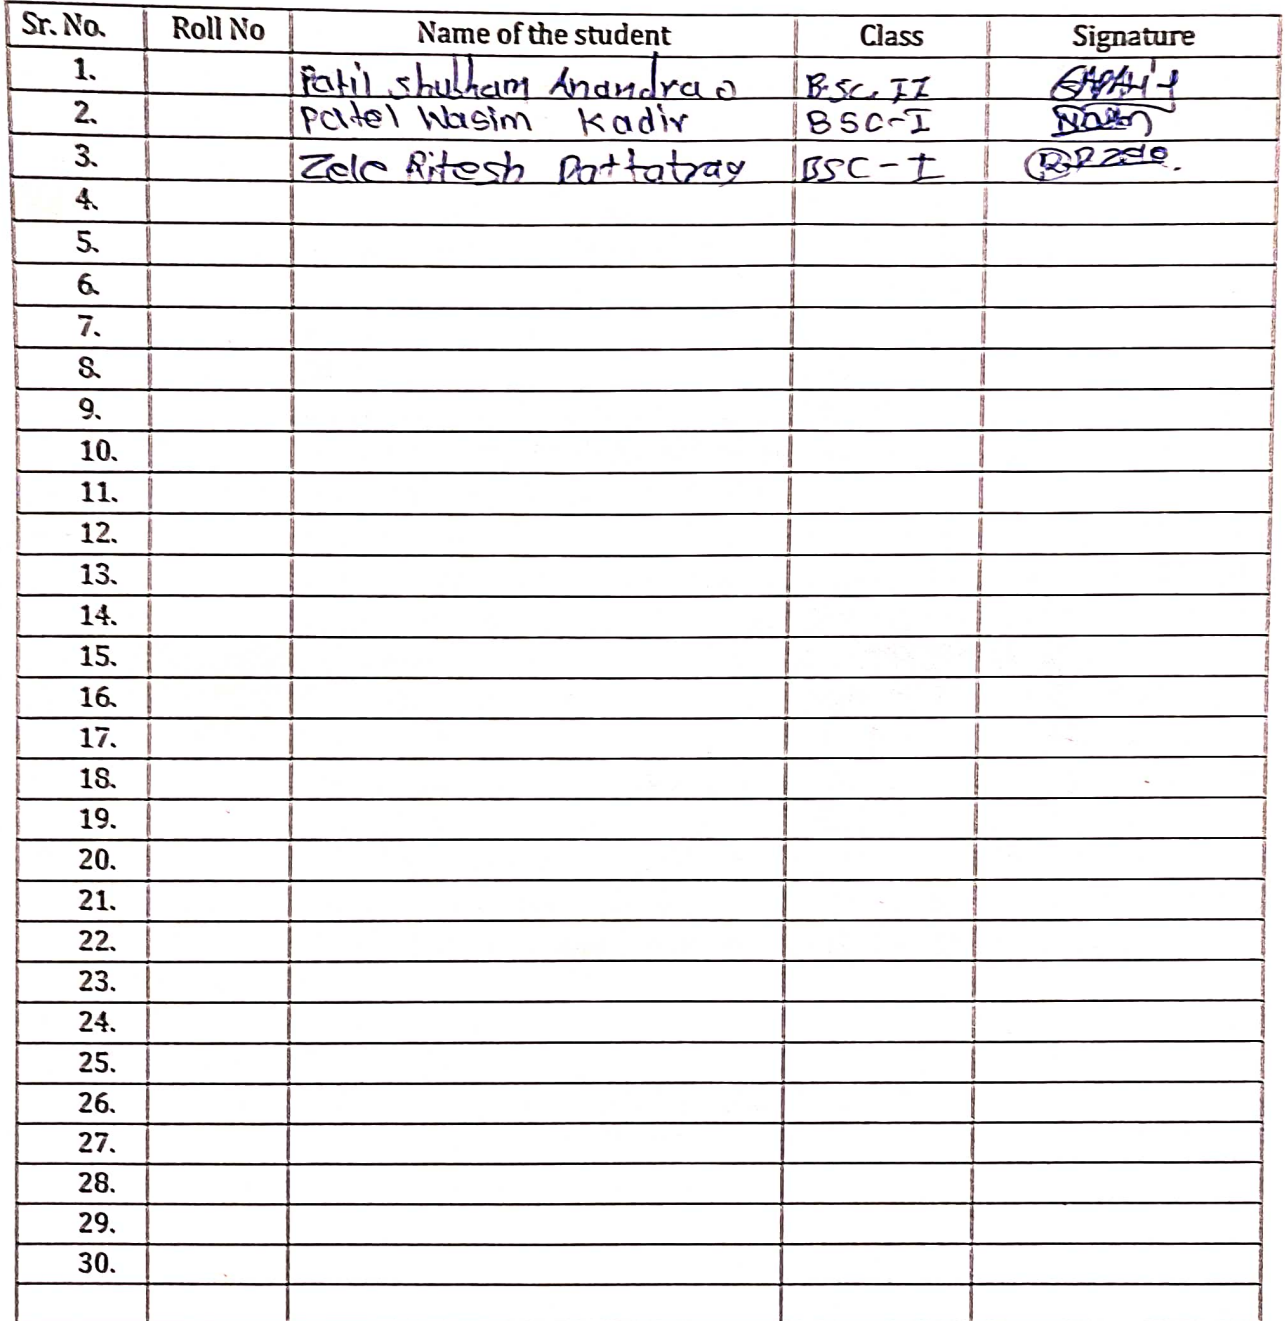 Sr. No. Roll No Name of the student Class Signature
1. Patil Shubham Anandrao BSC II
2. Patel Wasim Kadir BSC-I
3. Zele Ritesh Dattatray BSC-I
4.
5.
6.
7.
8.
9.
10.
11.
12.
13.
14.
15.
16.
17.
18.
19.
20.
21.
22.
23.
24.
25.
26.
27.
28.
29.
30.